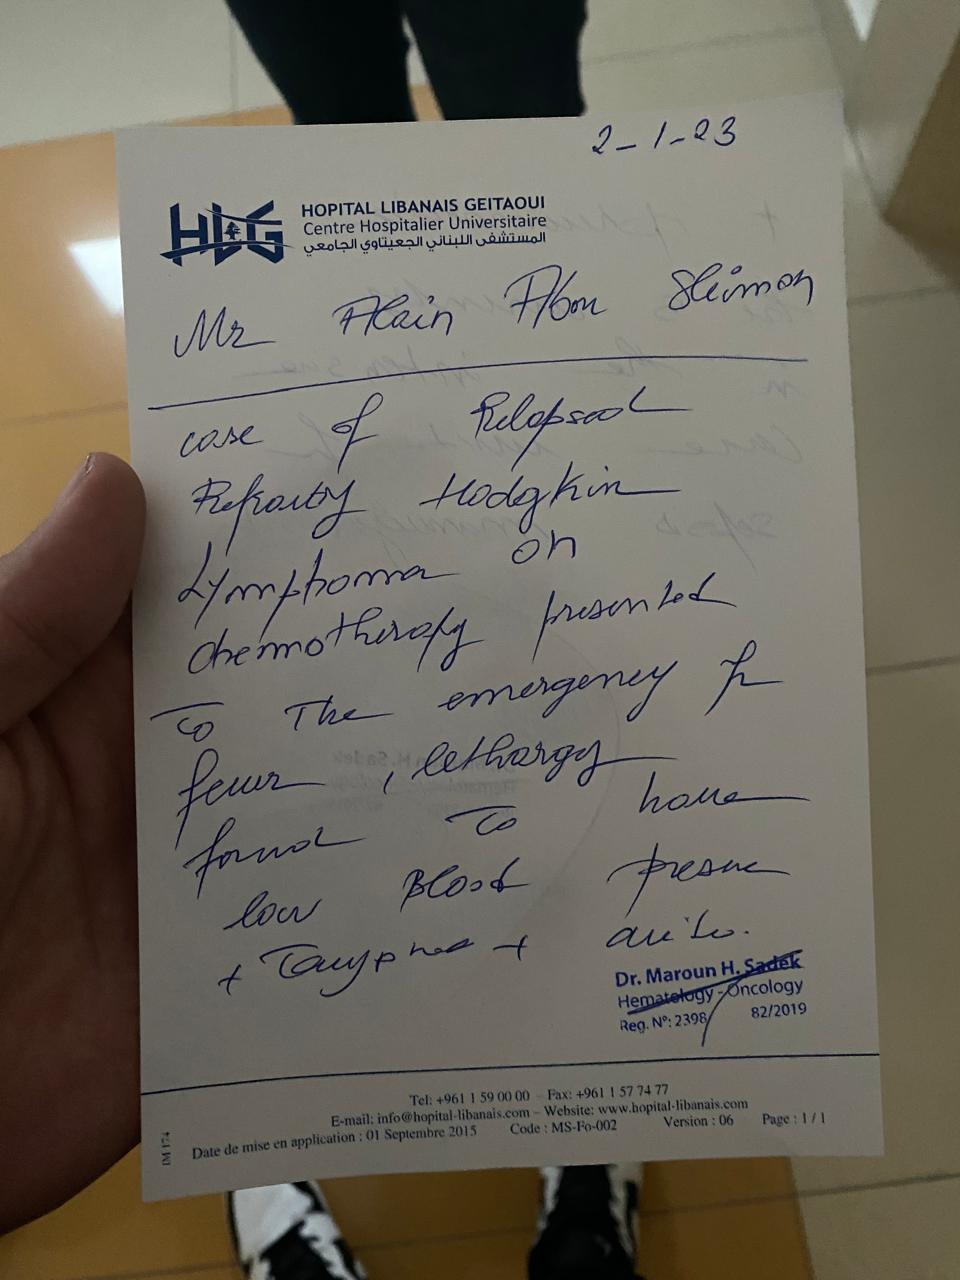 2-1-23
HLG
HOPITAL LIBANAIS GEITAOUI
Centre Hospitalier Universitaire
المستشفى اللبناني الجعيتاوي الجامعي
Mr Alain Abou Sleiman
case of Relapsed
Refracty Hodgkin
Lymphoma on
chemotherapy presented
To The emergency fr
fever, lethargy
found To have
low Blood pressure
+ +
Dr. Maroun H. Sadek
Hematology - Oncology
Reg. N°: 2398 82/2019
Tel: +961 1 59 00 00 – Fax: +961 1 57 74 77
E-mail: info@hopital-libanais.com – Website: www.hopital-libanais.com
Date de mise en application : 01 Septembre 2015 Code : MS-Fo-002 Version : 06 Page : 1 / 1
IM 174